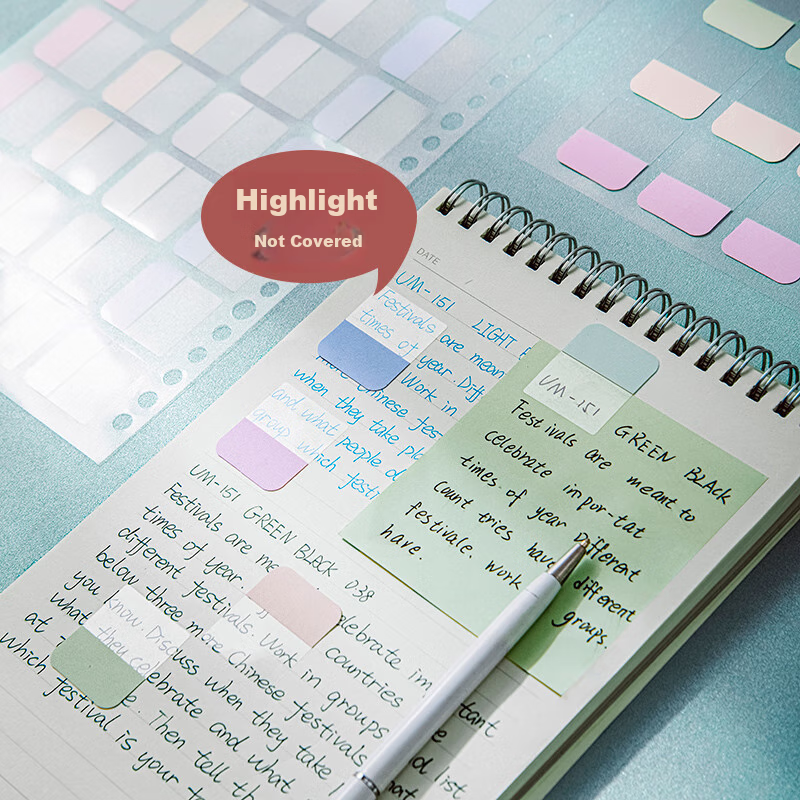 Highlight
Not Covered
DATE /
UM-151 LIGHT
Festivals are mean
times of year. Diff
Chinese fes
Work in
when they take pl
and what people d
group which festi
UM-151 GREEN BLACK
Festivals are meant to
celebrate in por-tat
times of year Different
Count tries have different
festivale. work groups.
have.
UM-151 GREEN BLACK 038
Festivals are me elebrate im
times of year. Countries
different festivals. Work in groups
below three more Chinese festivals
you know. Discuss when they take
what they celebrate and what
at Then tell th
which festival is your
tant
list